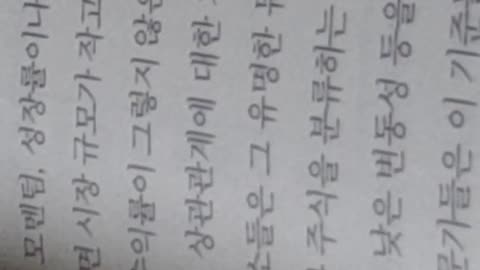 모멘텀, 성장률이나
시장 규모가 작고
수익률이 그렇지 않은
상관관계에 대한
그 유명한
주식을 분류하는
낮은 변동성 등을
이 기준